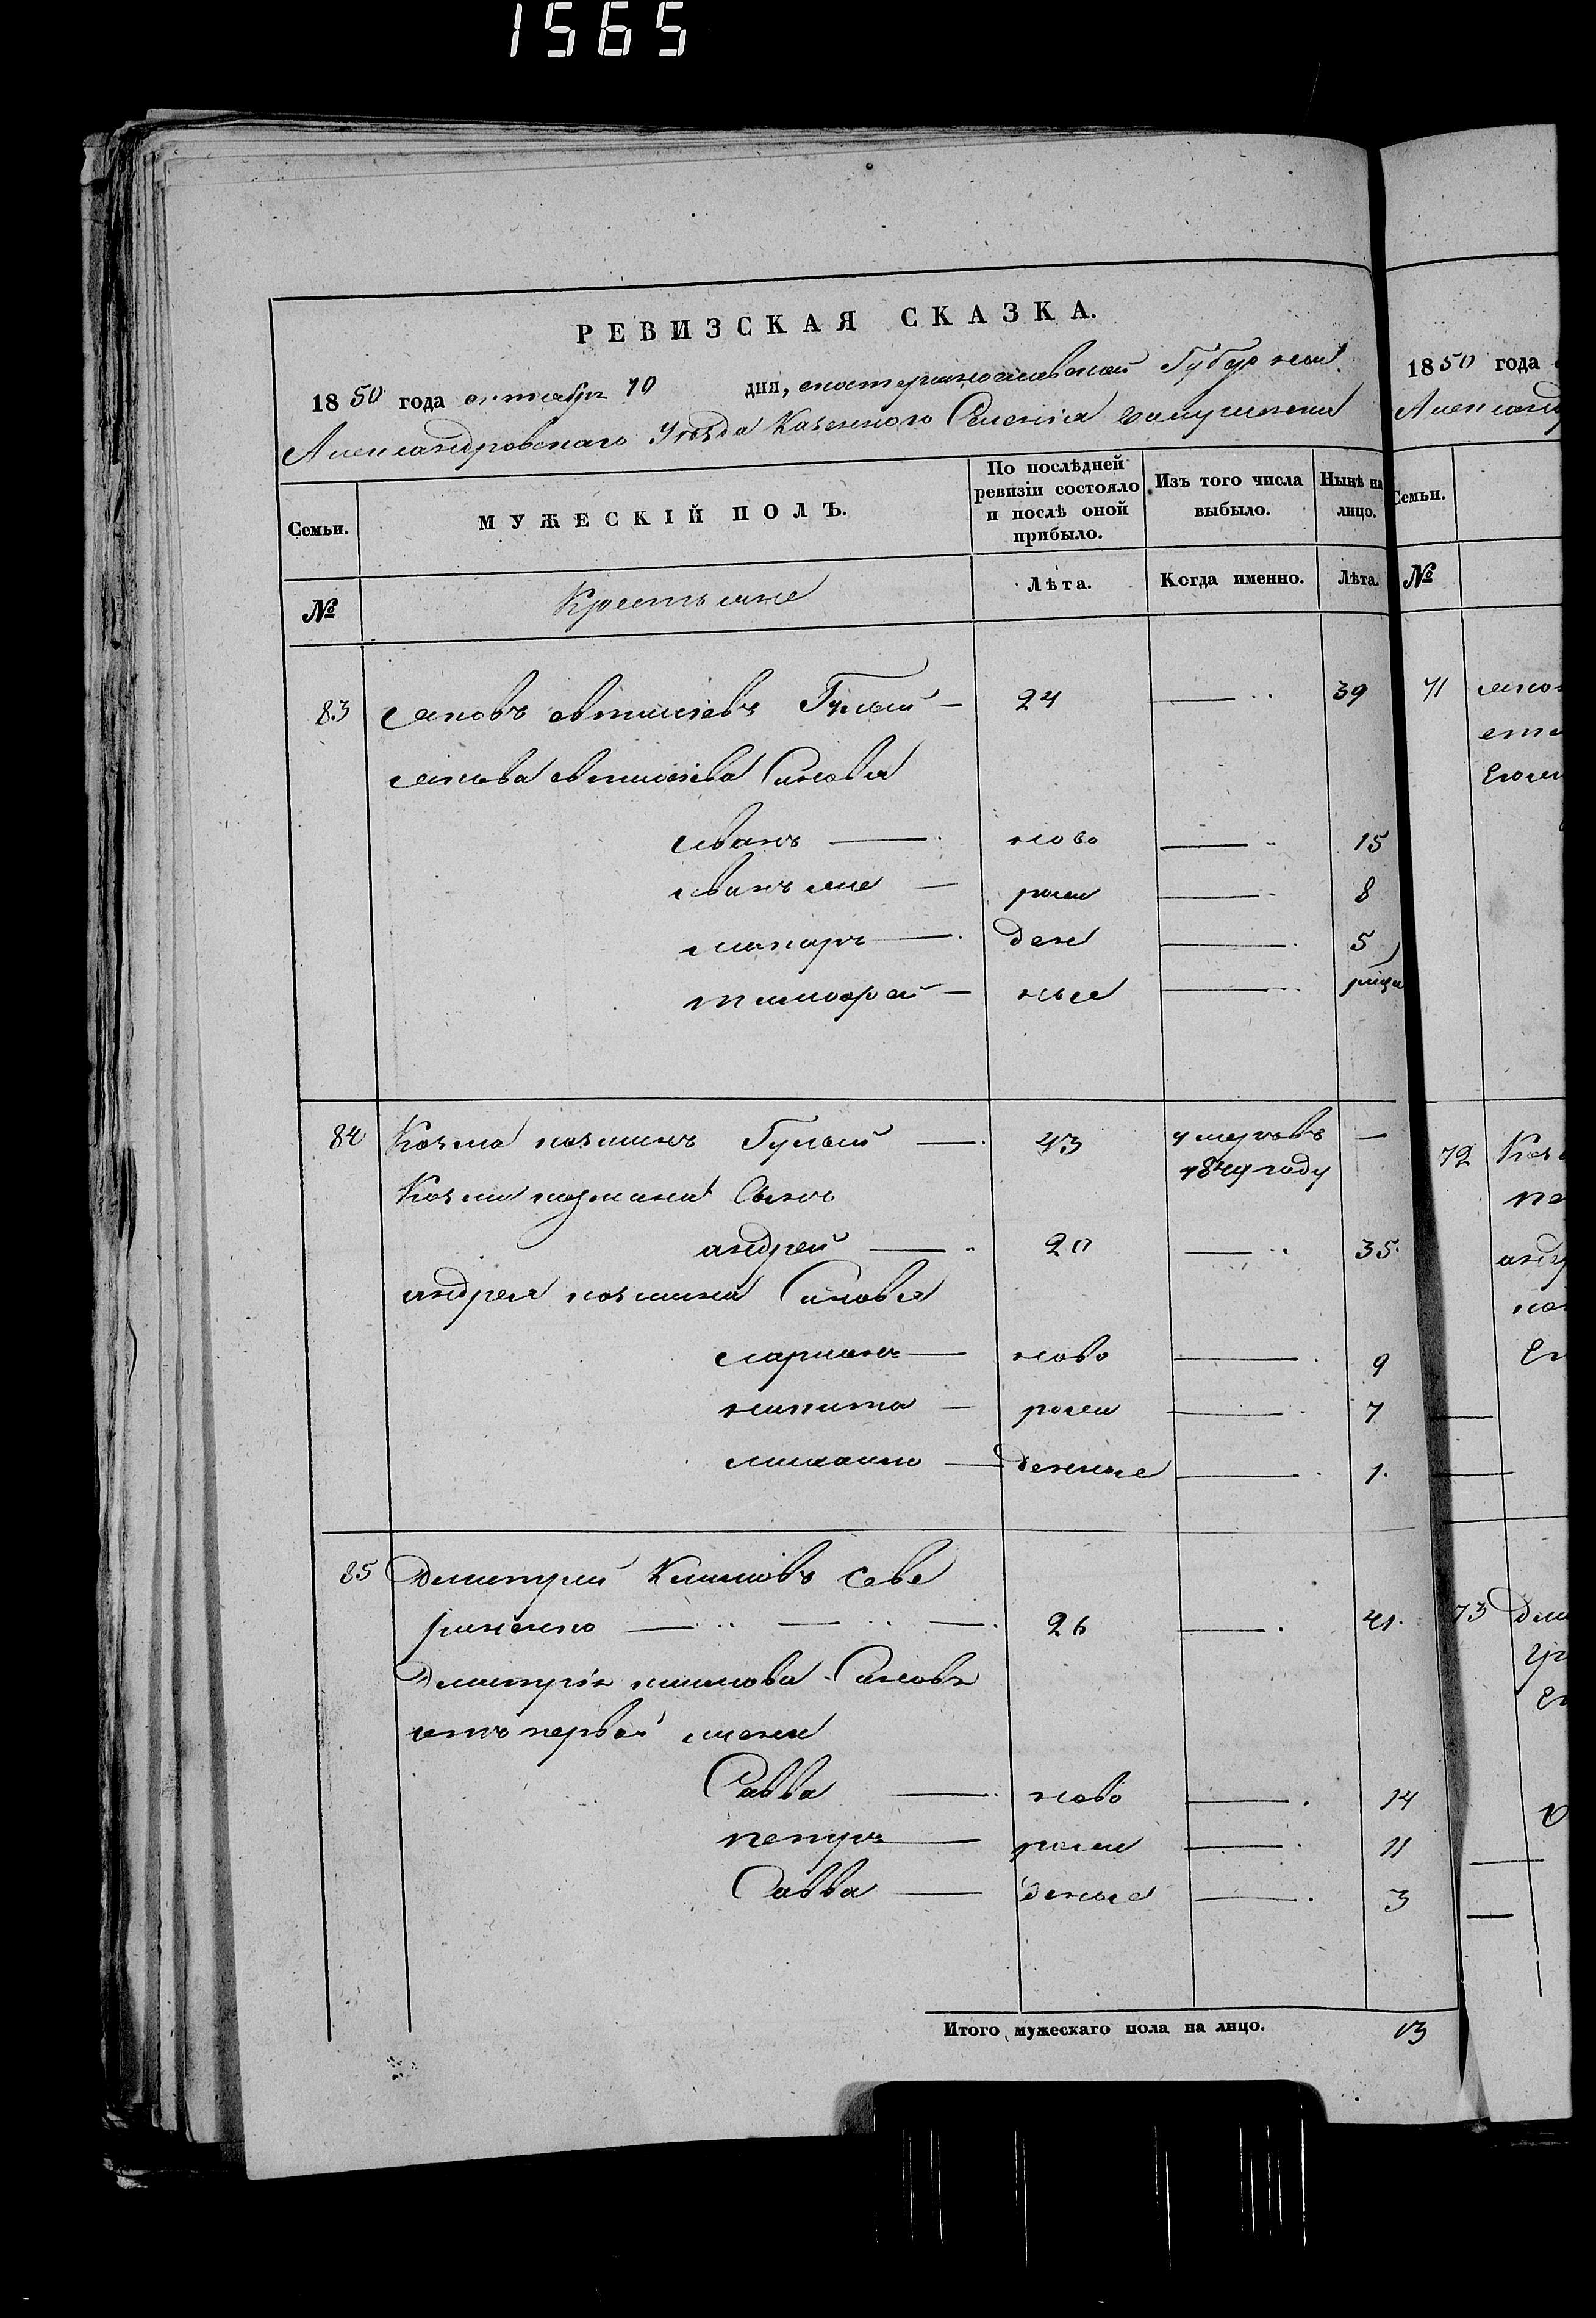 1565
РЕВИЗСКАЯ СКАЗКА.
1850 года октября 10 дня, екатеринославской Губер нии
Александровскаго Уѣзда Казенного Селенія
Семьи. МУЖЕСКІЙ ПОЛЪ. По послѣдней ревизіи состояло и послѣ оной прибыло. Изъ того числа выбыло. Нынѣ на лицо.
№ Крестьяне Лѣта. Когда именно. Лѣта.
83 яковъ евтихіевъ Гулый — 24 — 39
якова евтихіева Синовья
иванъ — ново — 15
иванъ же — рож — 8
макаръ — ден — 5
тимофей — ные —
84 Козма козминъ Гулый — 43 умеръ въ —
году
Козми козмина Сынъ
андрей — 20 — 35.
андрея козмина Синовья
ларионъ — ново — 9
никита — рож — 7
михаило — денные — 1.
85 Дмитрий Климовъ Севе
риненко — 26 — 41.
Дмитрія климова Синовья
отъ первой жены
Савва — ново — 14
петръ — рож — 11
Савва — деные — 3
Итого мужескаго пола на лицо. 13
1850 года
Семьи.
№
71
72
73